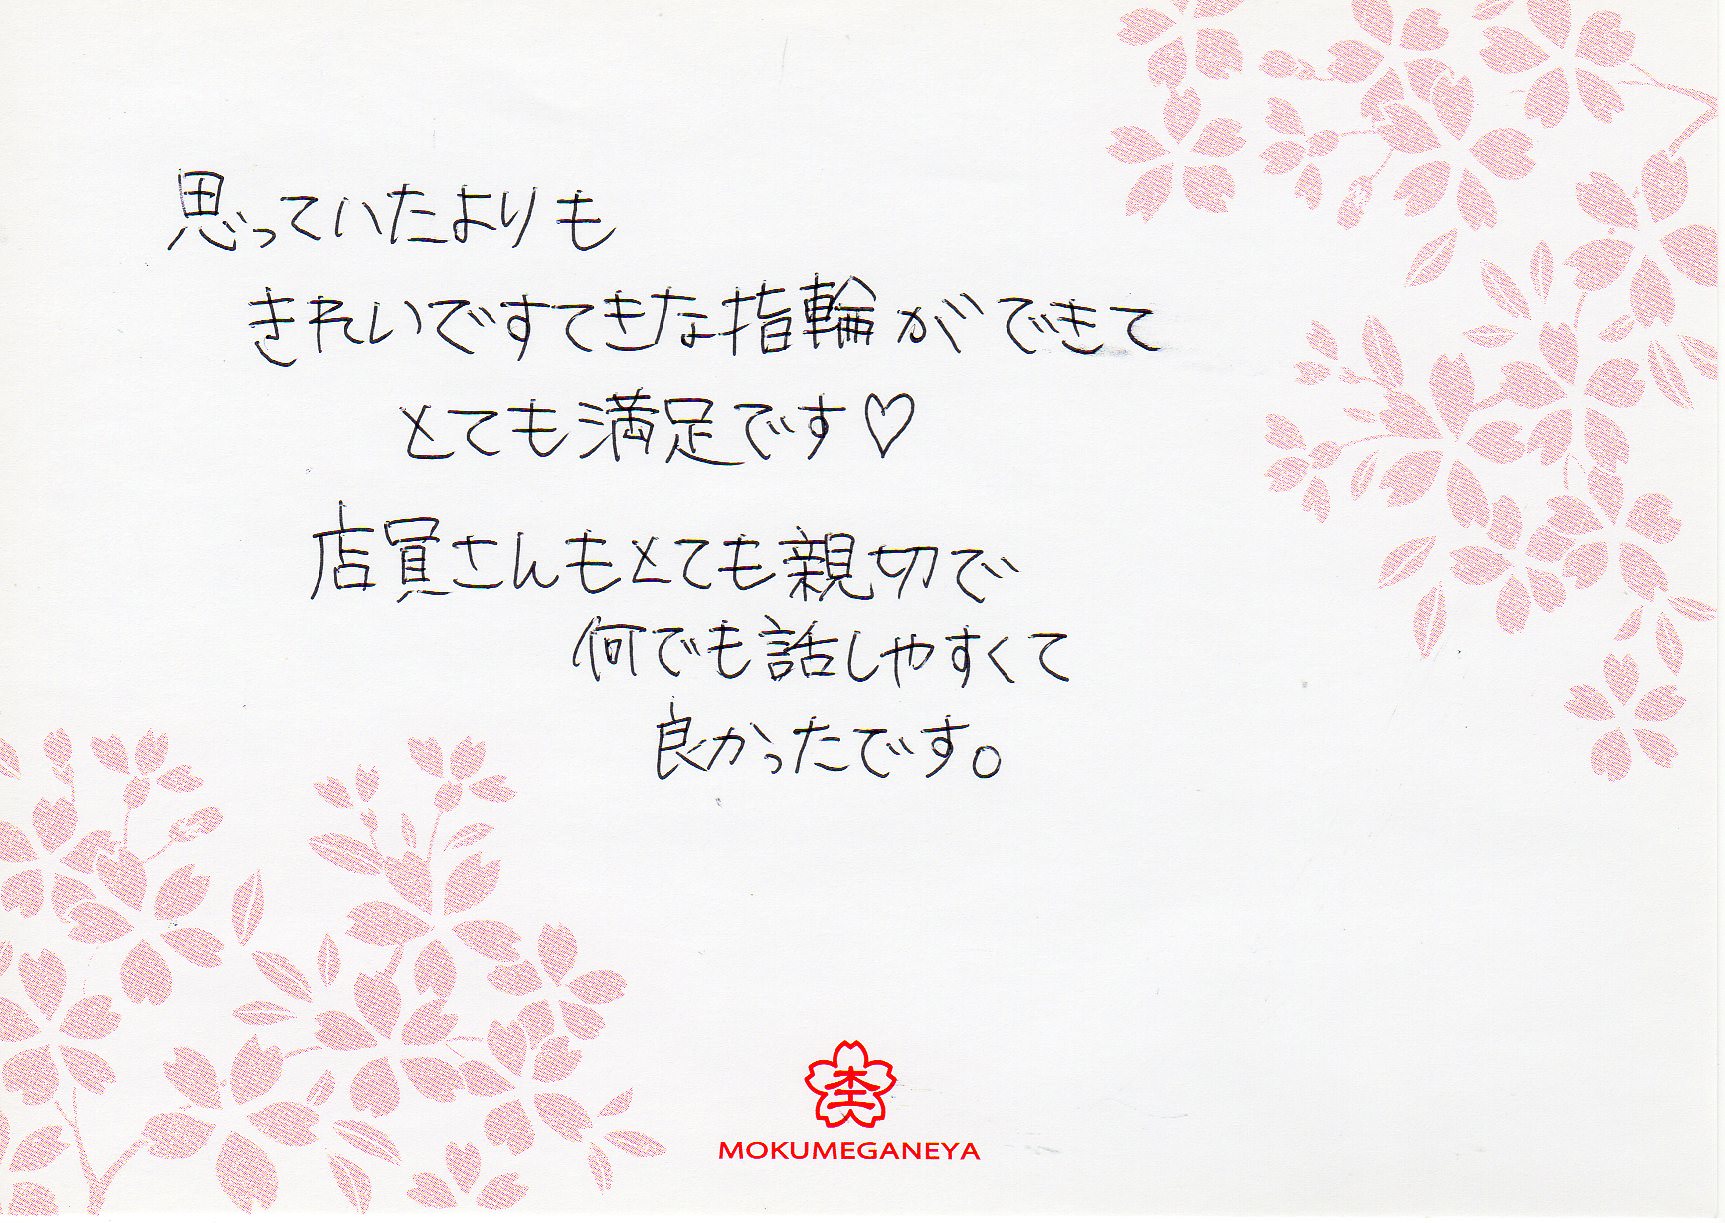 思っていたよりも
きれいですてきな指輪ができて
とても満足です♡
店員さんもとても親切で
何でも話しやすくて
良かったです。
MOKUMEGANEYA